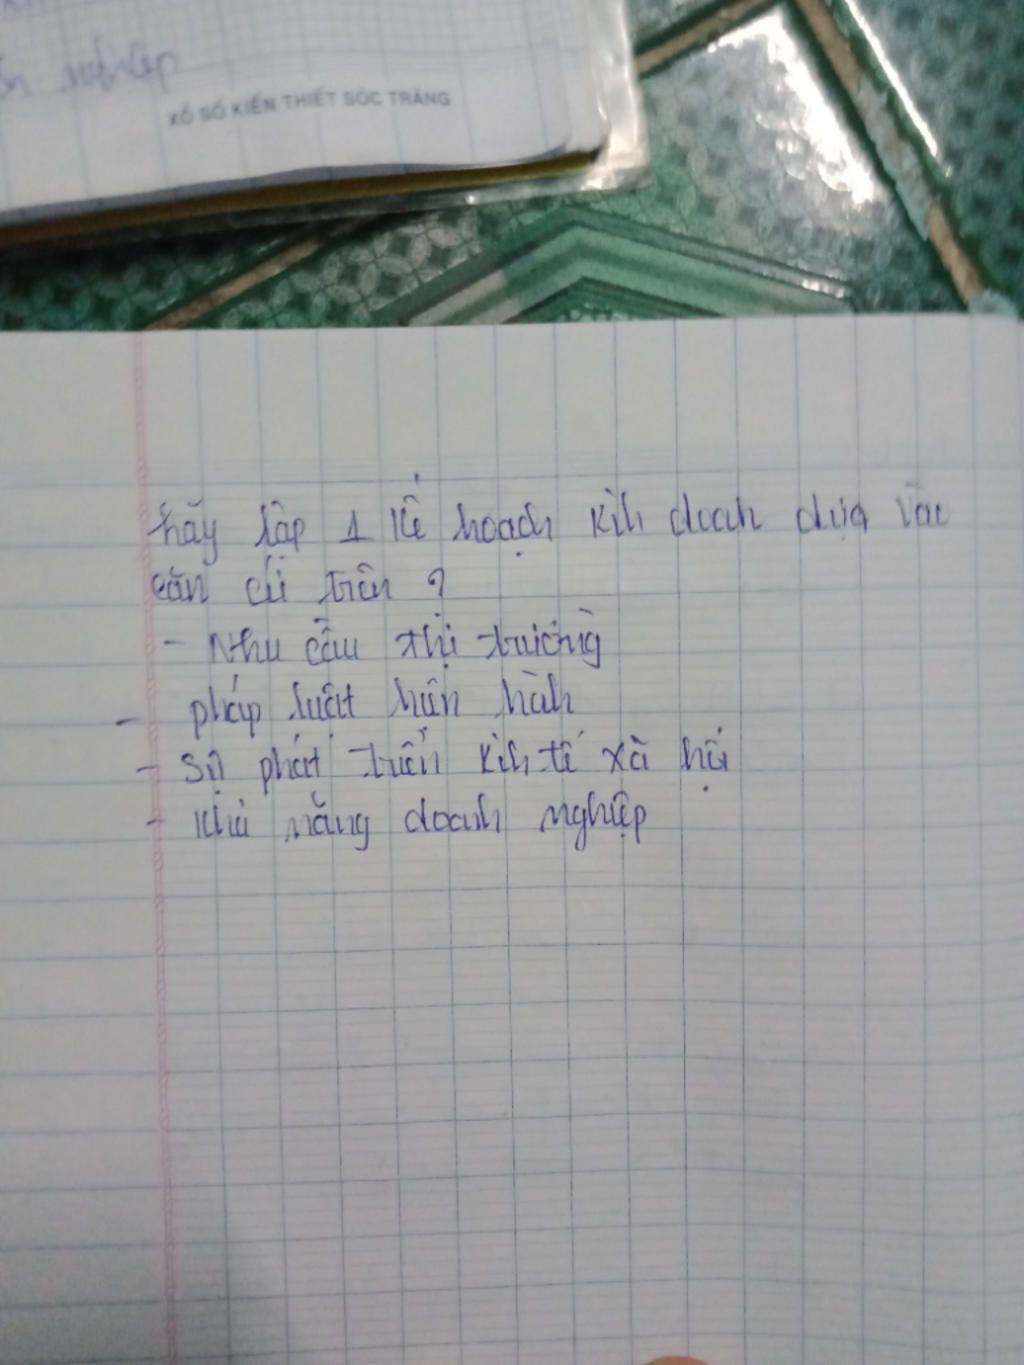 nghiệp
XỔ SỐ KIẾN THIẾT SÓC TRĂNG
hãy lập 1 kế hoạch kih doah dựa vào
căn cứ trên ?
- Nhu cầu thị trường
- pháp luật hiên hàh
- Sự phát triển kih tế xã hội
- khả năng doanh nghiệp